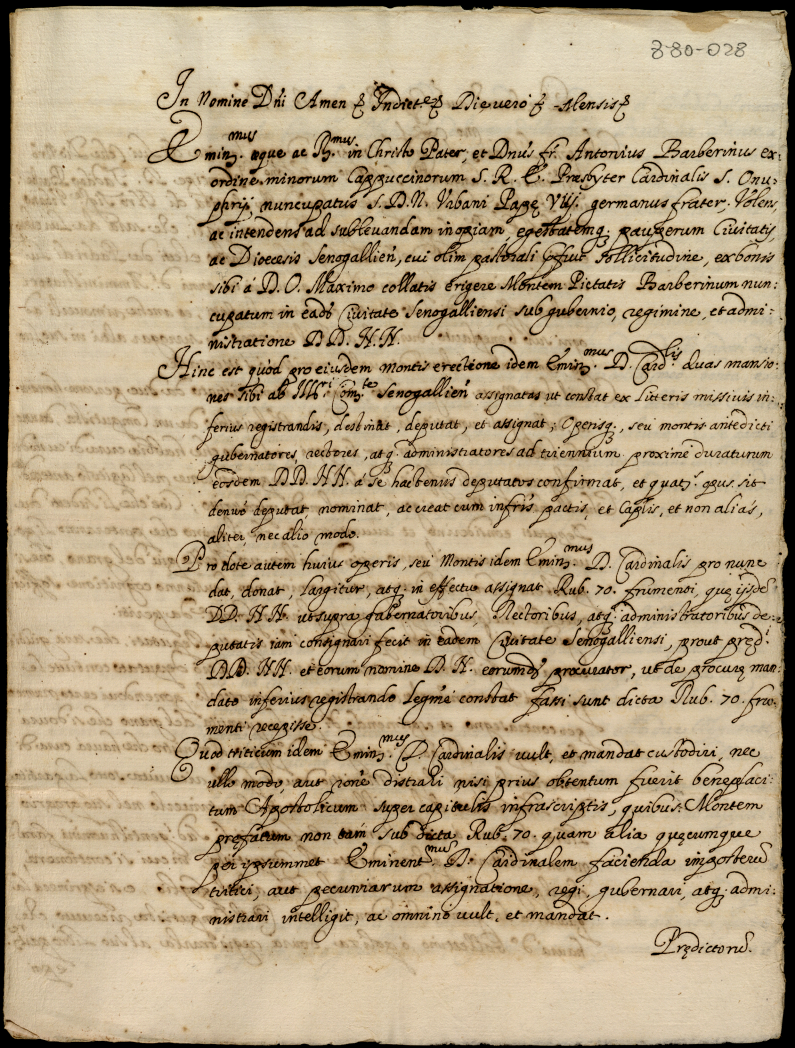 880-028
In Nomine Dñi Amen & Indict.e & Die vero & Mensis &
Emin.mus atque ac R.mus in Christo Pater, et Dnus fr. Antonius Barberinus ex
ordine minorum Cappuccinorum S. R. E. Præsbyter Cardinalis S. Onu-
phrij nuncupatus S. D. N. Vrbani Papę Viij. germanus frater, Volens,
ac intendens ad subleuandam inopiam, egestatemq; pauperum Ciuitatis,
ac Dioecesis Senogallien, cui olim pastorali p̃fuit sollicitudine, ex bonis
sibi á D. O. Maximo collatis erigere Montem Pietatis Barberinum nun:
cupatum in eadẽ Ciuitate Senogalliensi sub gubernio, regimine, et admi:
nistratione DD. H.H.
Hinc est quòd pro eiusdem montis erectione idem Emin.mus D. Card.lis duas mansio:
nes sibi ab Ill.ri Com.te Senogallien assignatas ut constat ex Litteris missiuis in:
ferius registrandis, destinat, deputat, et assignat; Operisq;, seu montis antedicti
gubernatores, rectores, atq; administratores ad triennium proximè duraturum
eosdem DD. HH. á se hactenus deputatos confirmat, et quat.s opus sit
denuò deputat nominat, ac creat cum infr̃is pactis, et Caplis, et non aliàs,
aliter, nec alio modo.
Pro dote autem huius operis, seu Montis idem Emin.mus D. Cardinalis pro nunc
dat, donat, largitur, atq; in effectu assignat Rub. 70. frumenti, quę ijsdẽ
DD. HH. ut supra gubernatoribus Rectoribus, atq; administratoribus de:
putatis iam consignari fecit in eadem Ciuitate Senogalliensi, prout pręd.i
DD. HH. et eorum nomine D. N. eorumdẽ procurator, ut de procurę man:
dato inferius registrando legmè constat fassi sunt dicta Rub. 70. fru
menti recepisse.
Quod triticum idem Emin.mus D. Cardinalis uult, et mandat custodiri, nec
ullo modo, aut rõne distrahi nisi prius obtentum fuerit beneplaci:
tum Apostolicum super capitulis infrascriptis, quibus Montem
prefatum non tam sub dicta Rub. 70. quam alia quęcumque
per ipsummet Eminent.mum D. Cardinalem facienda imposterũ
tritici, aut pecuniarum assignatione, regi, gubernari, atq; admi:
nistrari intelligit, ac omnino uult, et mandat.
Prędictorũ